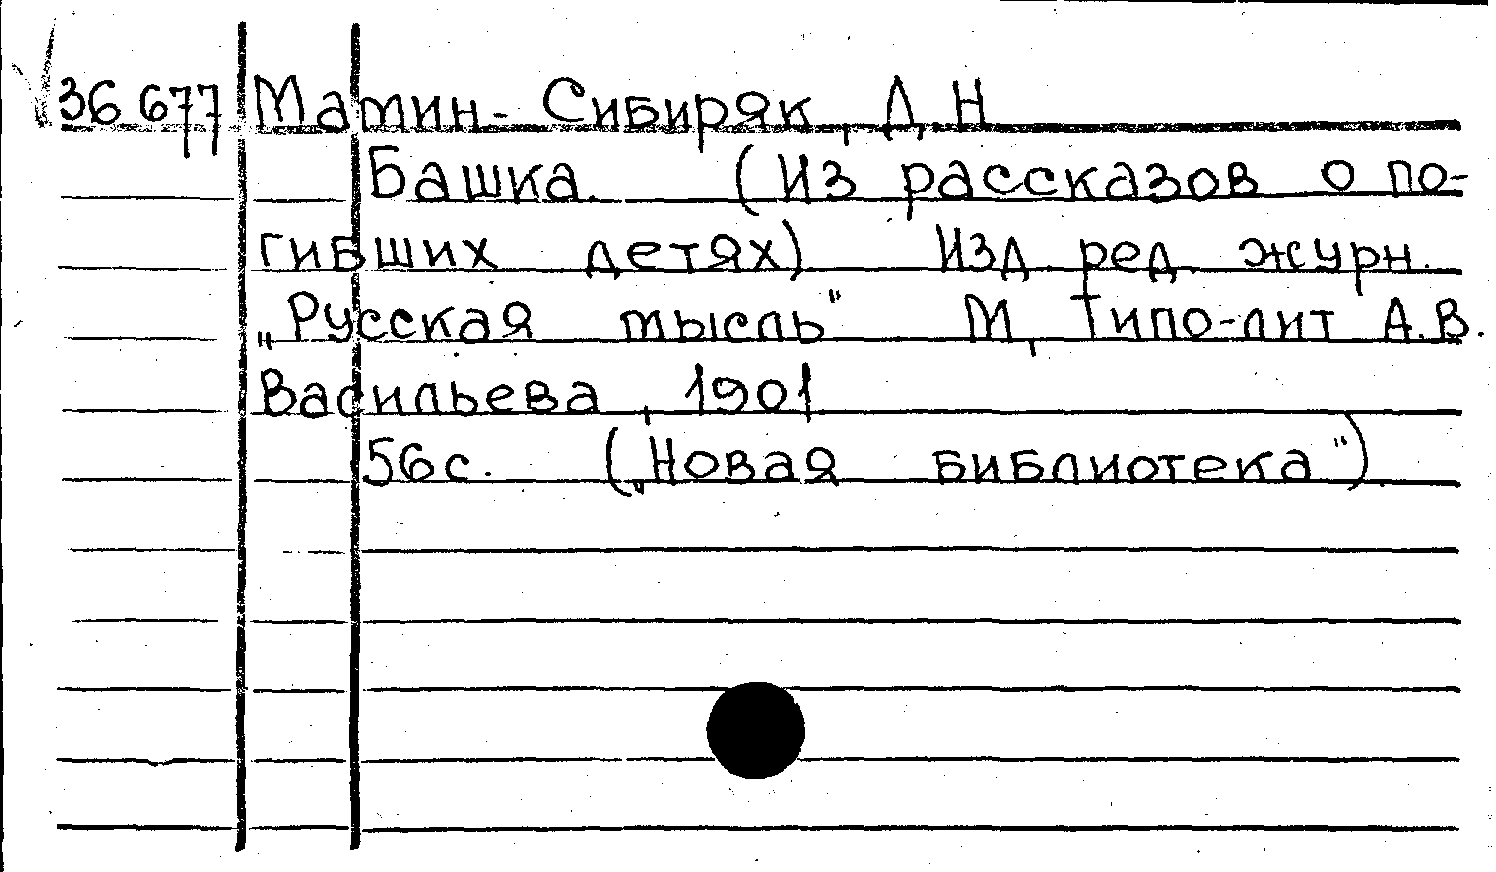 36 677 Мамин-Сибиряк, Д, Н
Башка. (Из рассказов о по-
гибших детях) Изд. ред. журн.
„Русская мысль" М, Типо-лит А.В.
Васильева, 1901
56с. („Новая библиотека")